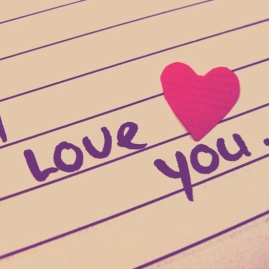 Love
you.